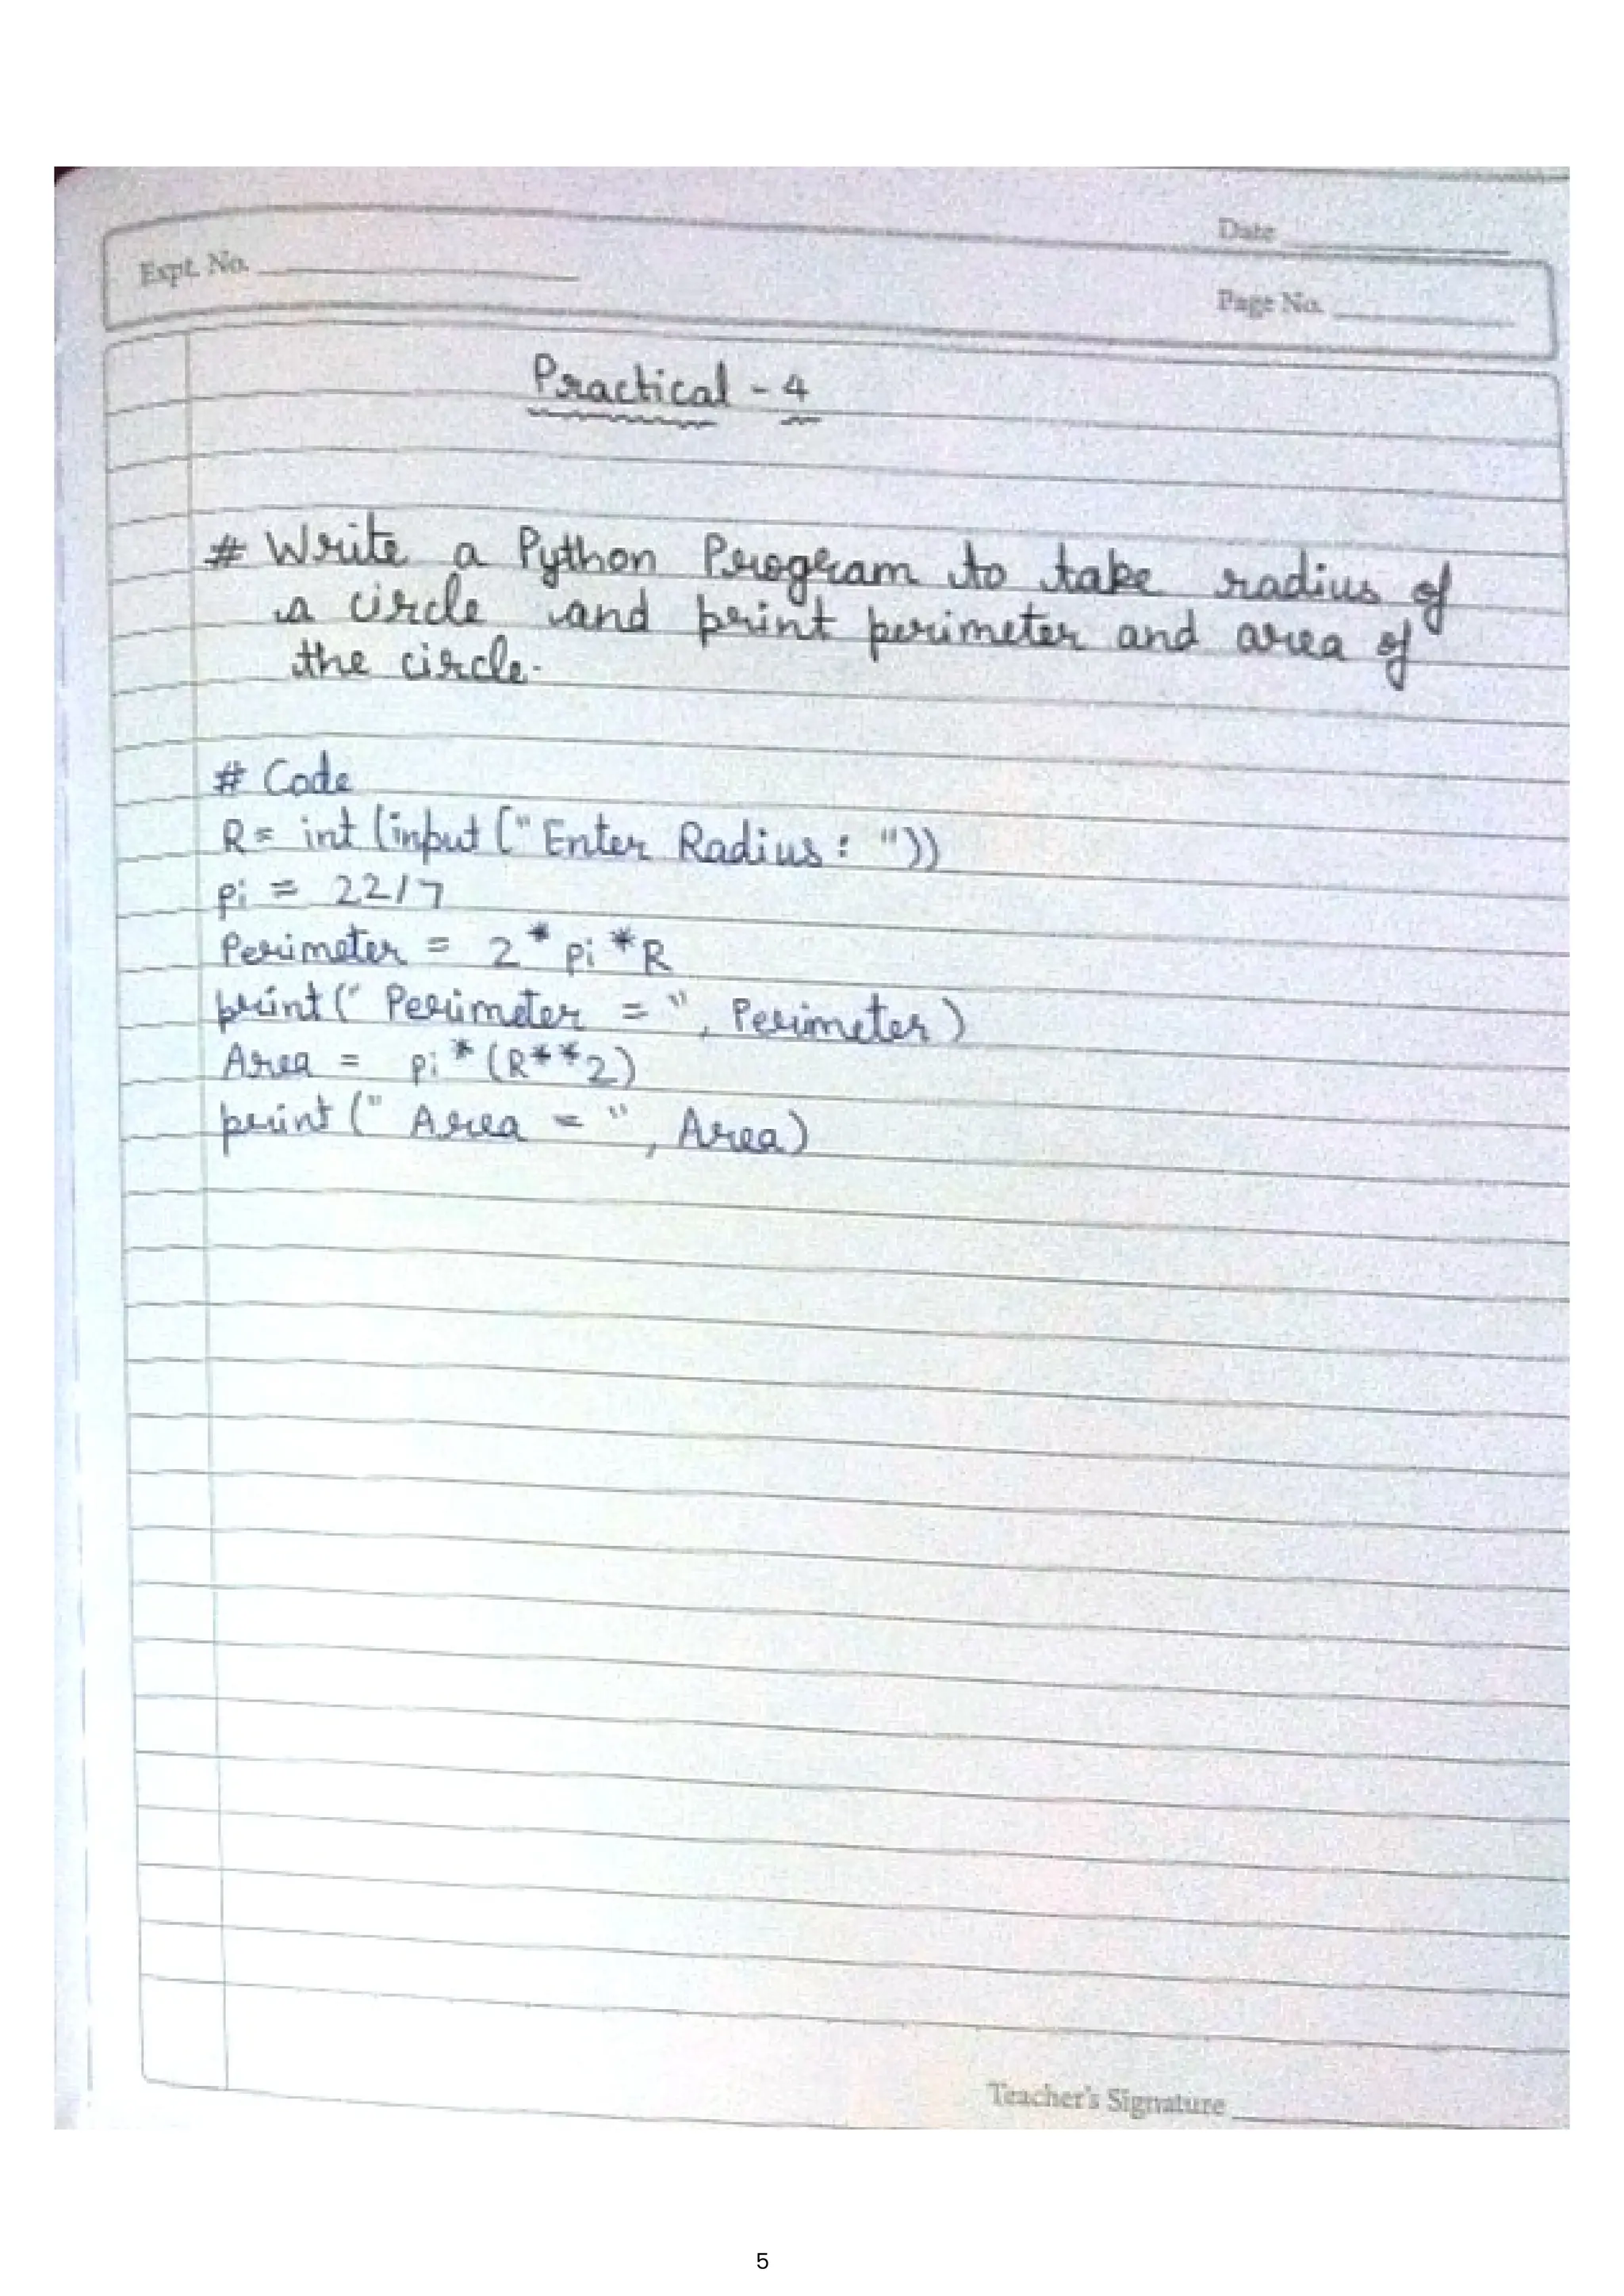 Date
Expt. No.
Page No.
Practical - 4
# Write a Python Program to take radius of
a circle and print perimeter and area of
the circle.
# Code
R = int (input ("Enter Radius : "))
pi = 22/7
Perimeter = 2 * pi * R
print (" Perimeter = ", Perimeter)
Area = pi * (R**2)
print (" Area = ", Area)
Teacher's Signature
5